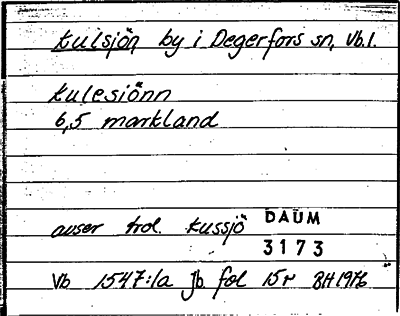 Kulsjön by i Degerfors sn, Vb.l.
Kulesiönn
6,5 markland
avser trol. Kussjö
DAUM
3173
Vb 1547:1a Jb fol 15r BH 1976